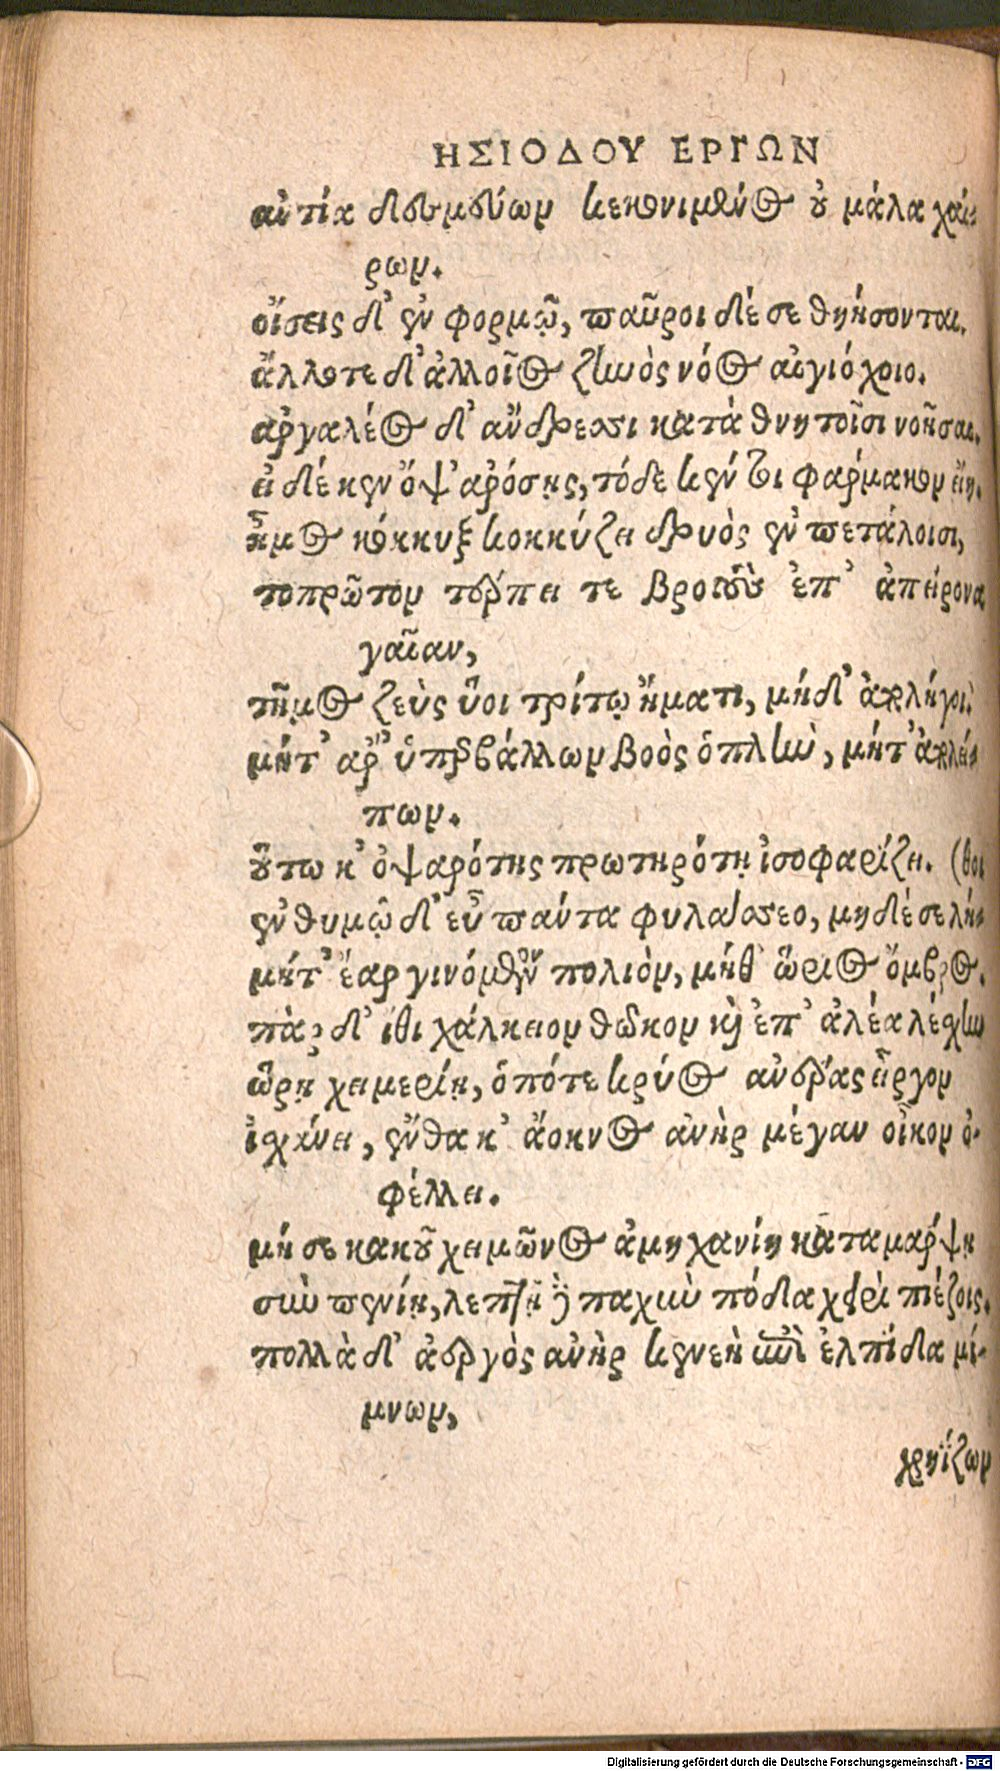 ΗΣΙΟΔΟΥ ΕΡΓΩΝ
αὐτία δεσμεύων κεκονιμένος οὐ μάλα χαί-
ρων.
οἴσεις δ' ἐν φορμῷ, παῦροι δέ σε θηήσονται.
ἄλλοτε δ' ἀλλοῖος ζηνὸς νόος αἰγιόχοιο.
ἀργαλέος δ' ἄνδρεσσι κατὰ θνητοῖσι νοῆσαι.
εἰ δέ κεν ὄψ' ἀρόσῃς, τόδε κέν τοι φάρμακον εἴη.
ἦμος κόκκυξ κοκκύζει δρυὸς ἐν πετάλοισι,
τοπρῶτον τέρπει τε βροτοὺς ἐπ' ἀπείρονα
γαῖαν,
τῆμος ζεὺς ὕοι τρίτῳ ἤματι, μήδ' ἀπολήγοι.
μήτ' ἂρ' ὑπερβάλλων βοὸς ὁπλὴν, μήτ' ἀπολεί-
πων.
οὕτω κ' ὀψαρότης πρωτηρότῃ ἰσοφαρίζει. (θοι
ἐν θυμῷ δ' εὖ πάντα φυλάσσεο, μηδέ σε λή-
μήτ' ἔαρ γινόμενον πολιὸν, μήθ' ὥριος ὄμβρος.
πὰρ δ' ἴθι χάλκειον θῶκον καὶ ἐπ' ἀλέα λέσχην
ὥρῃ χειμερίῃ, ὁπότε κρύος ἀνέρας εἶργον
ἰσχάνει, ἔνθα κ' ἄοκνος ἀνὴρ μέγαν οἶκον ὀ-
φέλλει.
μή σε κακοῦ χειμῶνος ἀμηχανίη καταμάρψῃ
σὺν πενίῃ, λεπτῇ δὲ παχὺν πόδα χειρὶ πιέζοις.
πολλὰ δ' ἀεργὸς ἀνὴρ κενεὴν ἐπὶ ἐλπίδα μί-
μνων,
χρηΐζων
Digitalisierung gefördert durch die Deutsche Forschungsgemeinschaft - DFG